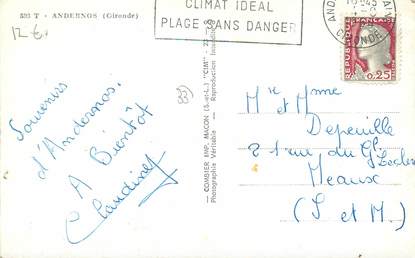 533 T - ANDERNOS (Gironde)
12 €
CLIMAT IDEAL
PLAGE SANS DANGER
GIRONDE
REPUBLIQUE FRANÇAISE
0,25
Souvenirs
d'Andernos.
A Bientôt
Claudine
COMBIER IMP. MACON (S.-et-L.) "CIM"
Photographie Véritable - Reproduction Interdite
Mr et Mme
Depeuille
2 rue du Gl Leclerc
Meaux
(S et M.)